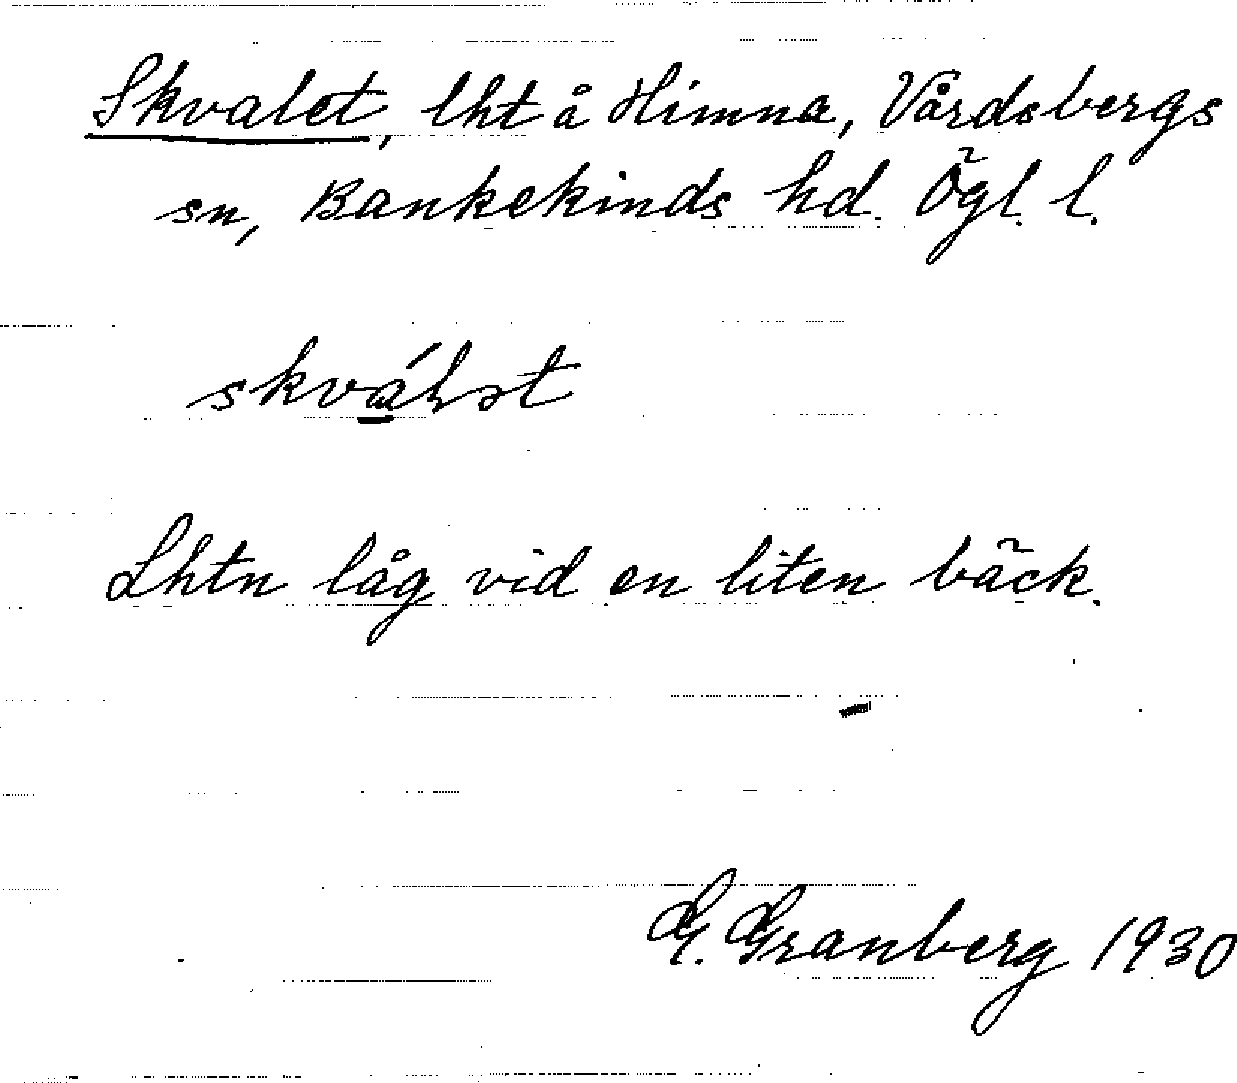 Skvalet, lht å Himna, Vårdsbergs
sn, Bankekinds hd. Ögl. l.
skválət
Lhtn låg vid en liten bäck.
G. Granberg 1930